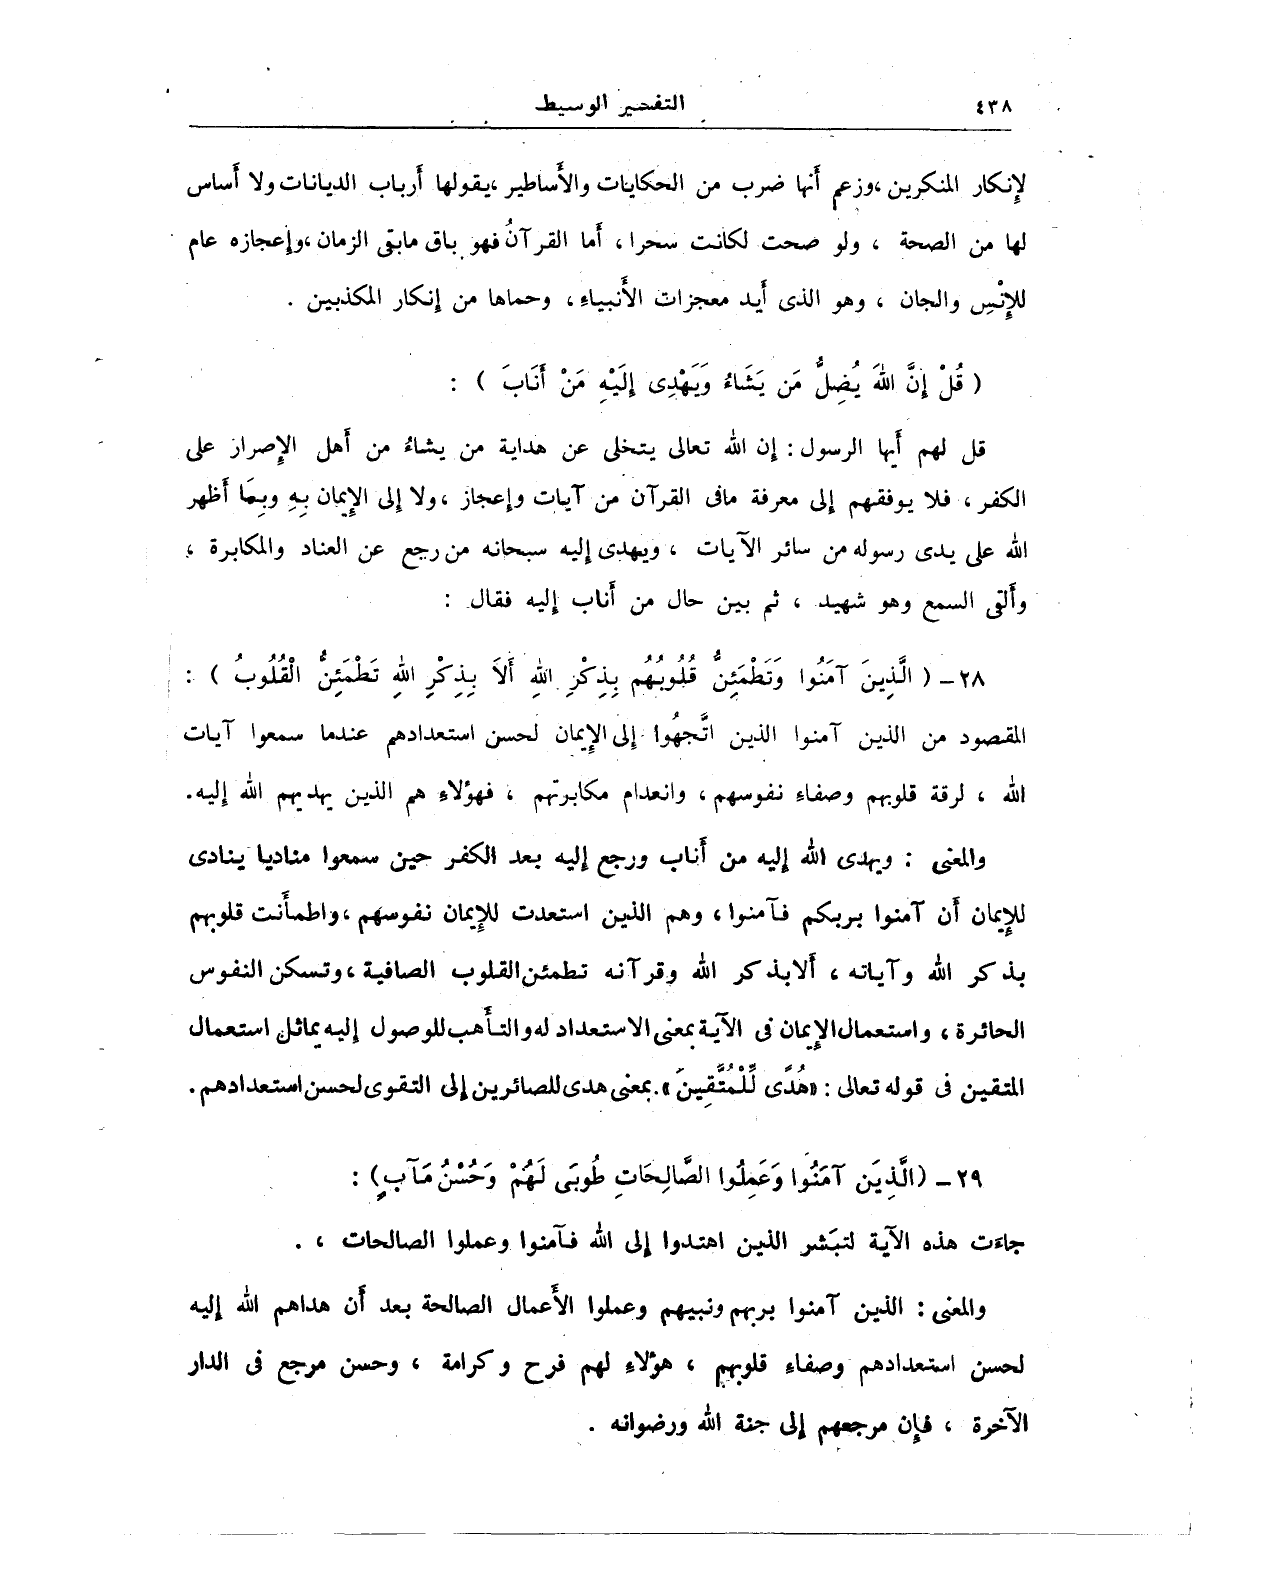 ٤٣٨ التفسير الوسيط
لإنكار المنكرين ، وزعم أنها ضرب من الحكايات والأساطير ، يقولها أرباب الديانات ولا أساس
لها من الصحة ، ولو صحت لكانت سحرا ، أما القرآنُ فهو باق مابقى الزمان ، وإعجازه عام
للإنْسِ والجان ، وهو الذى أيد معجزات الأنبياء ، وحماها من إنكار المكذبين .
( قُلْ إِنَّ اللهَ يُضِلُّ مَن يَشَاءُ وَيَهْدِى إِلَيْهِ مَنْ أَنَابَ ) :
قل لهم أيها الرسول : إن الله تعالى يتخلى عن هداية من يشاءُ من أهل الإصرار على
الكفر ، فلا يوفقهم إلى معرفة مافى القرآن من آيات وإعجاز ، ولا إلى الإيمان بِهِ وبِمَا أظهر
الله على يدى رسوله من سائر الآيات ، ويهدى إليه سبحانه من رجع عن العناد والمكابرة ،
وألقى السمع وهو شهيد ، ثم بين حال من أناب إليه فقال :
٢٨ - ( الَّذِينَ آمَنُوا وَتَطْمَئِنُّ قُلُوبُهُم بِذِكْرِ اللهِ أَلاَ بِذِكْرِ اللهِ تَطْمَئِنُّ الْقُلُوبُ ) :
المقصود من الذين آمنوا الذين اتَّجهُوا إلى الإيمان لحسن استعدادهم عندما سمعوا آيات
الله ، لرقة قلوبهم وصفاء نفوسهم ، وانعدام مكابرتهم ، فهؤلاءِ هم الذين يهديهم الله إليه.
والمعنى : ويهدى الله إليه من أناب ورجع إليه بعد الكفر حين سمعوا مناديا ينادى
للإيمان أن آمنوا بربكم فآمنوا ، وهم الذين استعدت للإيمان نفوسهم ، واطمأنت قلوبهم
بذكر الله وآياته ، ألا بذكر الله وقرآنه تطمئن القلوب الصافية ، وتسكن النفوس
الحائرة ، واستعمال الإيمان فى الآية بمعنى الاستعداد له والتأهب للوصول إليه يماثل استعمال
المتقين فى قوله تعالى : «هُدًى لِّلْمُتَّقِينَ» . بمعنى هدى للصائرين إلى التقوى لحسن استعدادهم .
٢٩ - (الَّذِيَن آمَنُوا وَعَمِلُوا الصَّالِحَاتِ طُوبَى لَهُمْ وَحُسْنُ مَآبٍ) :
جاءَت هذه الآية لتبَشر الذين اهتدوا إلى الله فآمنوا وعملوا الصالحات ، .
والمعنى : الذين آمنوا بربهم ونبيهم وعملوا الأعمال الصالحة بعد أن هداهم الله إليه
لحسن استعدادهم وصفاءِ قلوبهم ، هؤلاءِ لهم فرح وكرامة ، وحسن مرجع فى الدار
الآخرة ، فإن مرجعهم إلى جنة الله ورضوانه .